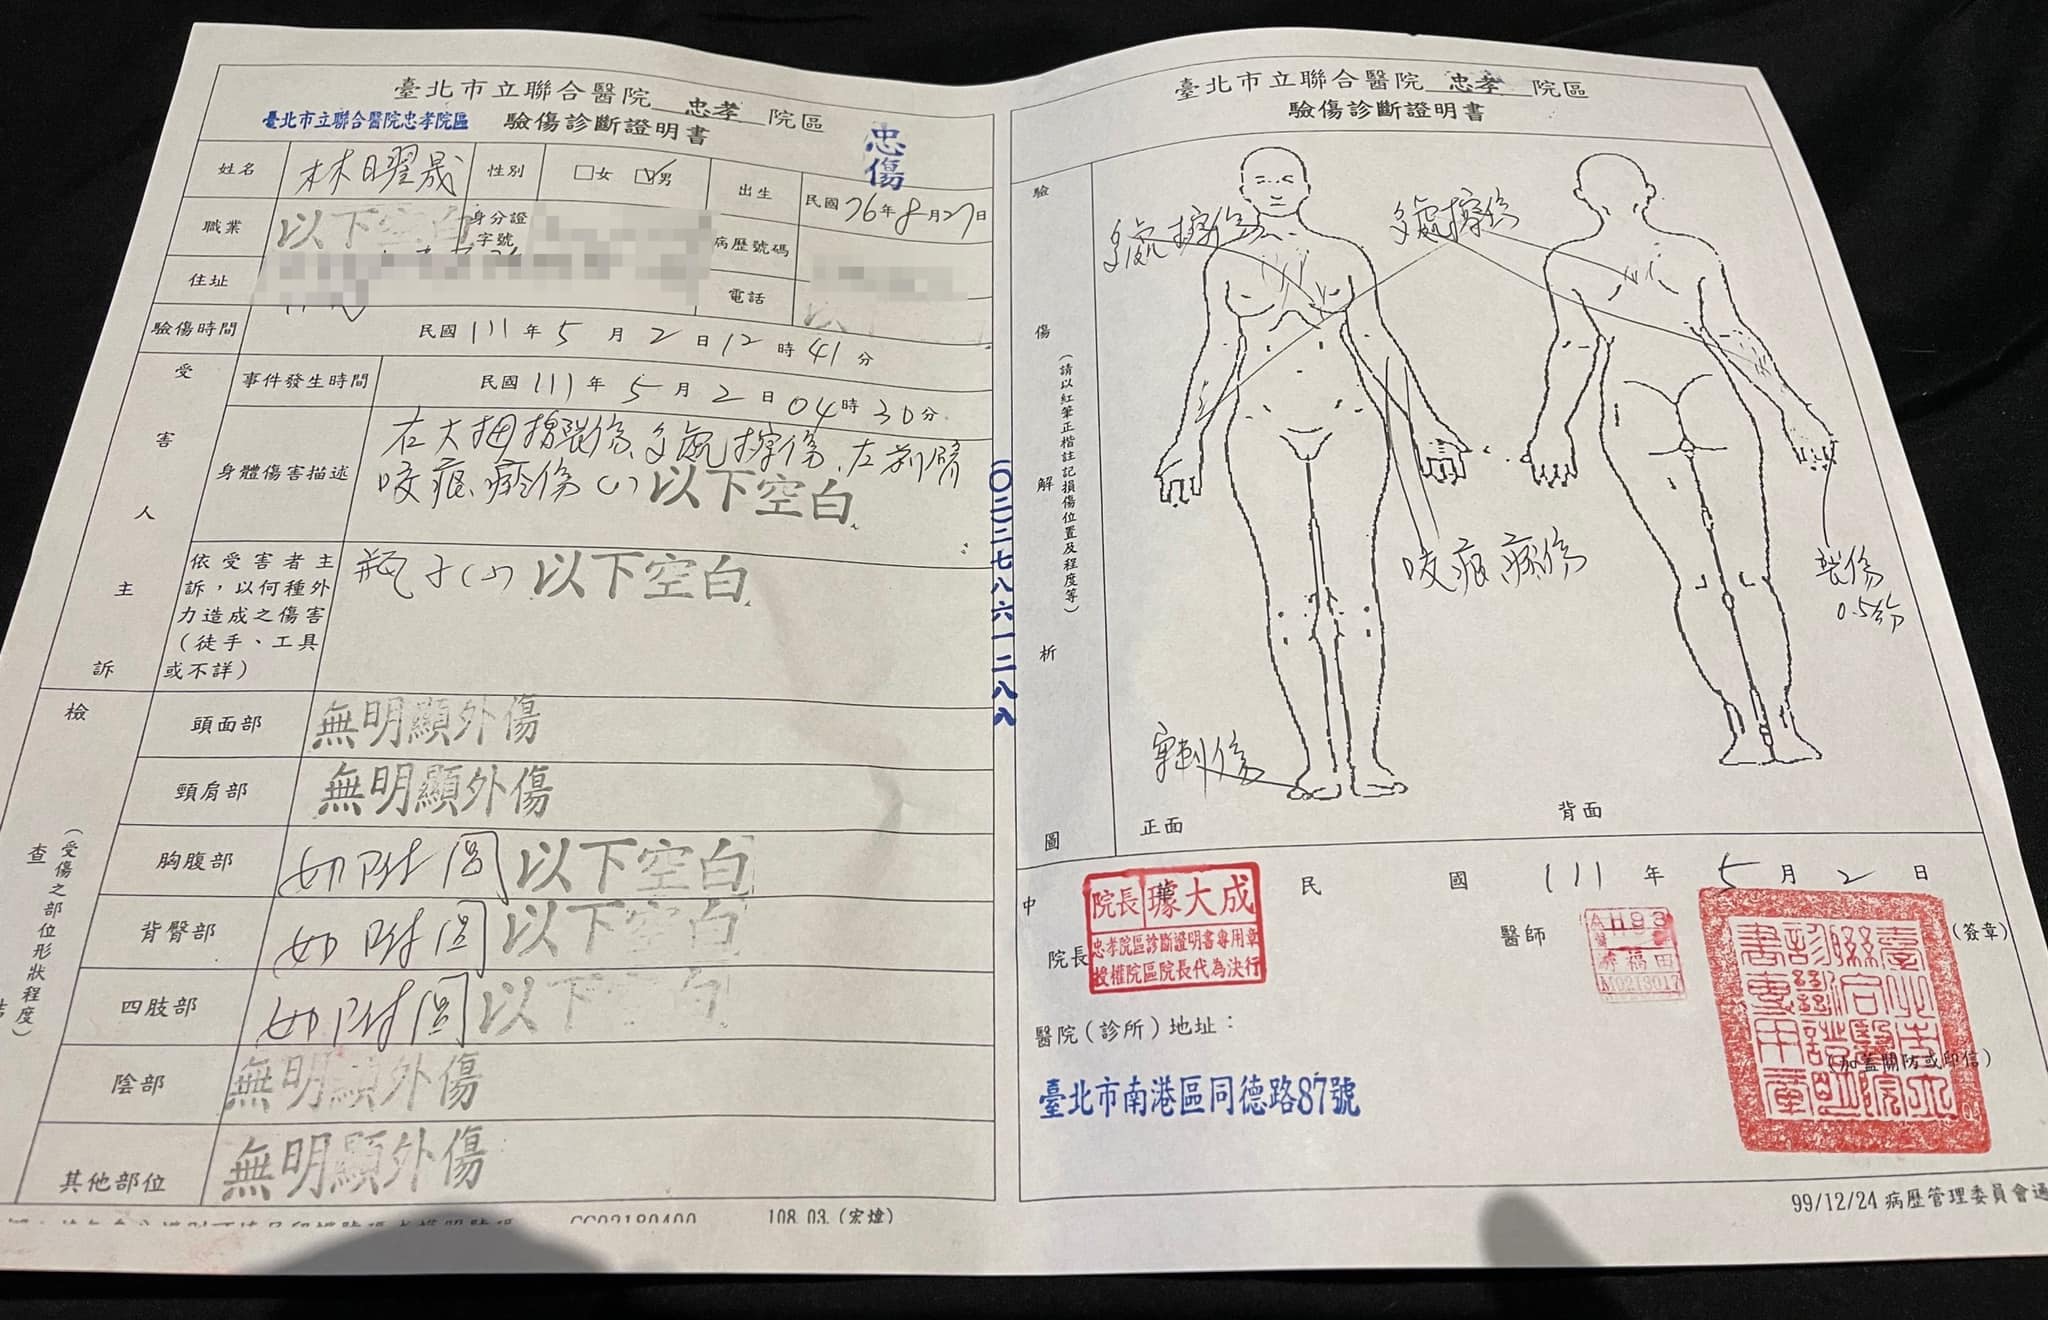 臺北市立聯合醫院 忠孝 院區
臺北市立聯合醫院忠孝院區 驗傷診斷證明書
忠傷
姓名 林曜晟 性別 □女 ☑男 出生 民國76年8月27日
職業 以下空白 身分證字號 病歷號碼
住址 電話
驗傷時間 民國111年5月2日12時41分
受害人主訴
事件發生時間 民國111年5月2日04時30分
身體傷害描述
右大拇指裂傷、多處擦傷、左前臂
咬痕瘀傷 以下空白
依受害者主訴，以何種外力造成之傷害（徒手、工具或不詳）
瓶子 以下空白
檢查
（受傷之部位形狀程度）
頭面部 無明顯外傷
頸肩部 無明顯外傷
胸腹部 如附圖 以下空白
背臀部 如附圖 以下空白
四肢部 如附圖 以下空白
陰部 無明顯外傷
其他部位 無明顯外傷
108.03.(宏煒)
〇二二七八六一二八八
臺北市立聯合醫院 忠孝 院區
驗傷診斷證明書
驗傷解析圖
（請以紅筆正楷註記損傷位置及程度等）
多處擦傷
多處擦傷
咬痕瘀傷
裂傷
0.5公分
穿刺傷
正面
背面
中 民 國 111 年 5 月 2 日
院長
院長 璩大成
忠孝院區診斷證明書專用章
授權院區院長代為決行
醫師
（簽章）
醫院（診所）地址：
（加蓋關防或印信）
臺北市南港區同德路87號
99/12/24 病歷管理委員會通